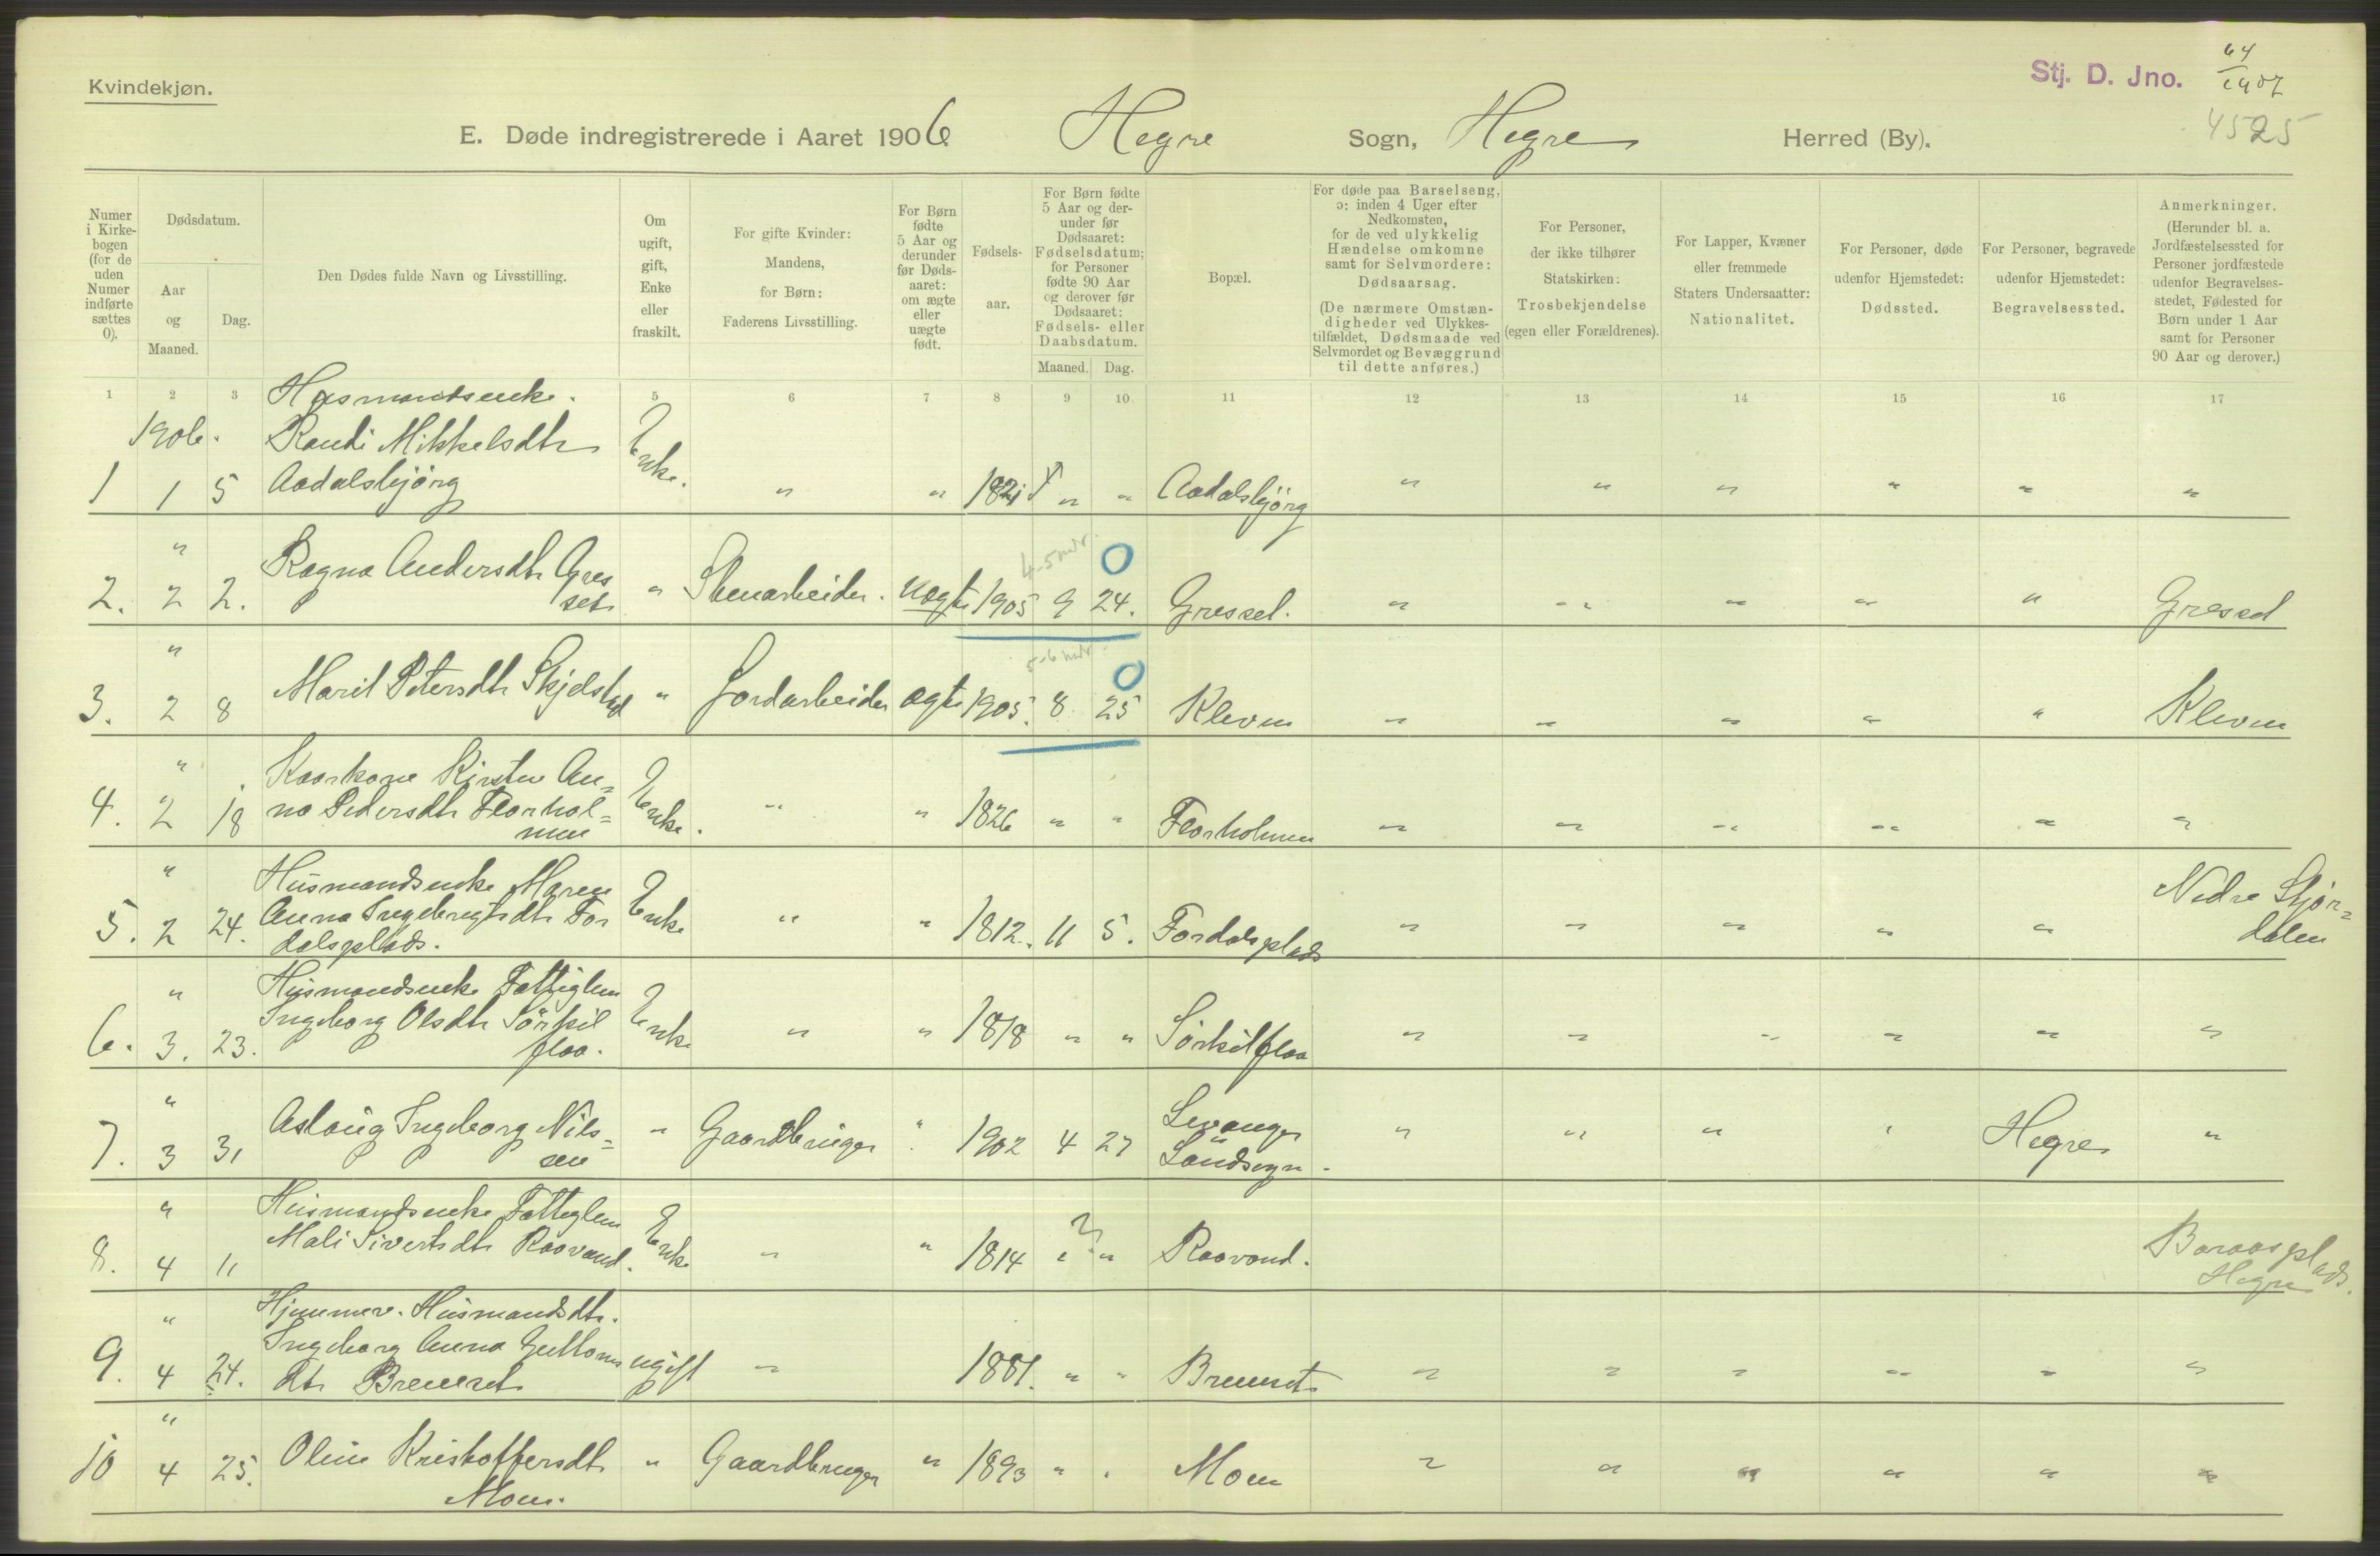 Kvindekjøn.
Stj. D. Jno. 64/1907
4525
E. Døde indregistrerede i Aaret 1906 Hegre Sogn, Hegre Herred (By).
Numer i Kirke-bogen (for de uden Numer indførte sættes 0).
Dødsdatum.
Aar og Maaned.
Dag.
Den Dødes fulde Navn og Livsstilling.
Om ugift, gift, Enke eller fraskilt.
For gifte Kvinder: Mandens, for Børn: Faderens Livsstilling.
For Børn fødte 5 Aar og derunder før Døds-aaret: om ægte eller uægte født.
Fødsels-aar.
For Børn fødte 5 Aar og der-under før Dødsaaret: Fødselsdatum; for Personer fødte 90 Aar og derover før Dødsaaret: Fødsels- eller Daabsdatum.
Maaned. Dag.
Bopæl.
For døde paa Barselseng, ɔ: inden 4 Uger efter Nedkomsten, for de ved ulykkelig Hændelse omkomne samt for Selvmordere: Dødsaarsag.
(De nærmere Omstæn-digheder ved Ulykkes-tilfældet, Dødsmaade ved Selvmordet og Bevæggrund til dette anføres.)
For Personer, der ikke tilhører Statskirken: Trosbekjendelse (egen eller Forældrenes).
For Lapper, Kvæner eller fremmede Staters Undersaatter: Nationalitet.
For Personer, døde udenfor Hjemstedet: Dødssted.
For Personer, begravede udenfor Hjemstedet: Begravelsessted.
Anmerkninger. (Herunder bl. a. Jordfæstelsessted for Personer jordfæstede udenfor Begravelses-stedet, Fødested for Børn under 1 Aar samt for Personer 90 Aar og derover.)
1 2 3 5 6 7 8 9 10 11 12 13 14 15 16 17
Husmandsenke.
1906. Randi Mikkelsdtr Enke.
1 1 5 Aadalsbjörg " " 1821 " " Aadalsbjörg " " " " " "
" 4-5 mdr. 0
2. 2 2. Ragna Andersdtr Gresset " Stenarbeider. uægte 1905 9 24. Gresset. " " " " " Gresset
" 5-6 mdr. 0
3. 2 8 Marit Petersdtr Skjelstad " Jordarbeider ægte 1905. 8 25 Kleven " " " " " Kleven
" Kaarkone Kirsten An=
4. 2 18 na Pedersdtr Florhol= Enke. " " 1826 " " Florholmen " " " " " "
men
" Husmandsenke Maren
5. 2 24. Anna Ingebrigtsdtr For Enke " " 1812. 11 5. Fordalsplads " " " " " Nedre Stjör=
dalsplads. dalen
" Husmandsenke Fattiglem
6. 3. 23. Ingeborg Olsdtr Sörkil Enke " " 1818 " " Sörkilflaa " " " " " "
flaa.
"
7. 3 31 Aslaug Ingeborg Nils= " Gaardbruger " 1902 4 27 Levanger " " " " Hegre "
sen Landsogn.
" Husmandsenke Fattiglem ?
8. 4 11 Mali Sivertsdtr Raavand. Enke " " 1814 " " Raavand. Baraasplads.
Hegre
" Hjemmev. Husmandsdtr.
9. 4 24. Ingeborg Anna Guttorms ugift " 1881. " " Bremset " " " " " "
dtr Bremset
"
10 4 25. Oline Kristoffersdtr " Gaardbruger " 1893 " " Moen " " " " " "
Moen.